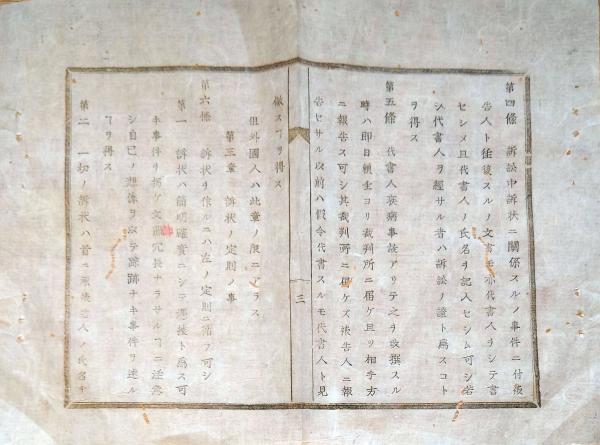 第四條 訴訟中訴状ニ關係スルノ事件ニ付被
告人ト往復スルノ文書モ亦代書人ヲシテ書
セシメ且代書人ノ氏名ヲ記入セシム可シ若
シ代書人ヲ經サル者ハ訴訟ノ證ト為スコト
ヲ得ス
第五條 代書人疾病事故アリテ之ヲ改撰スル
時ハ即日頼主ヨリ裁判所ニ届ケ且ツ相手方
ニ報告ス可シ其裁判所ニ届ケズ被告人ニ報
告セサル以前ハ假令代書スルモ代書人ト見
三
做スヿヲ得ス
但外國人ハ此章ノ限ニアラス
第三章 訴状ノ定則ノ事
第六條 訴状ヲ作ルニハ左ノ定則ニ循フ可シ
第一 訴状ハ簡明確實ニシテ ト為ス可
キ事件ヲ 文 冗長ナラサルヿニ注意
シ自己ノ想像ヲ以テ踪跡ナキ事件ヲ述ル
ヿヲ得ス
第二 一切ノ訴状ハ首ニ原被告人ノ氏名